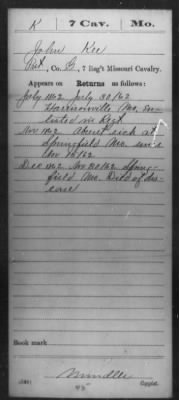 K | 7 Cav. | Mo.
John Kee
Pvt., Co. G, 7 Reg't Missouri Cavalry.
Appears on Returns as follows:
July 1862 July 30, 1862
Harrisonville Mo. En-
listed in Regt
Nov 1862 Absent sick at
Springfield Mo. since
Nov 10/62
Dec 1862 Nov 30/62 Spring-
field Mo. Died of dis-
ease
Book mark:
(546)
Copyist.